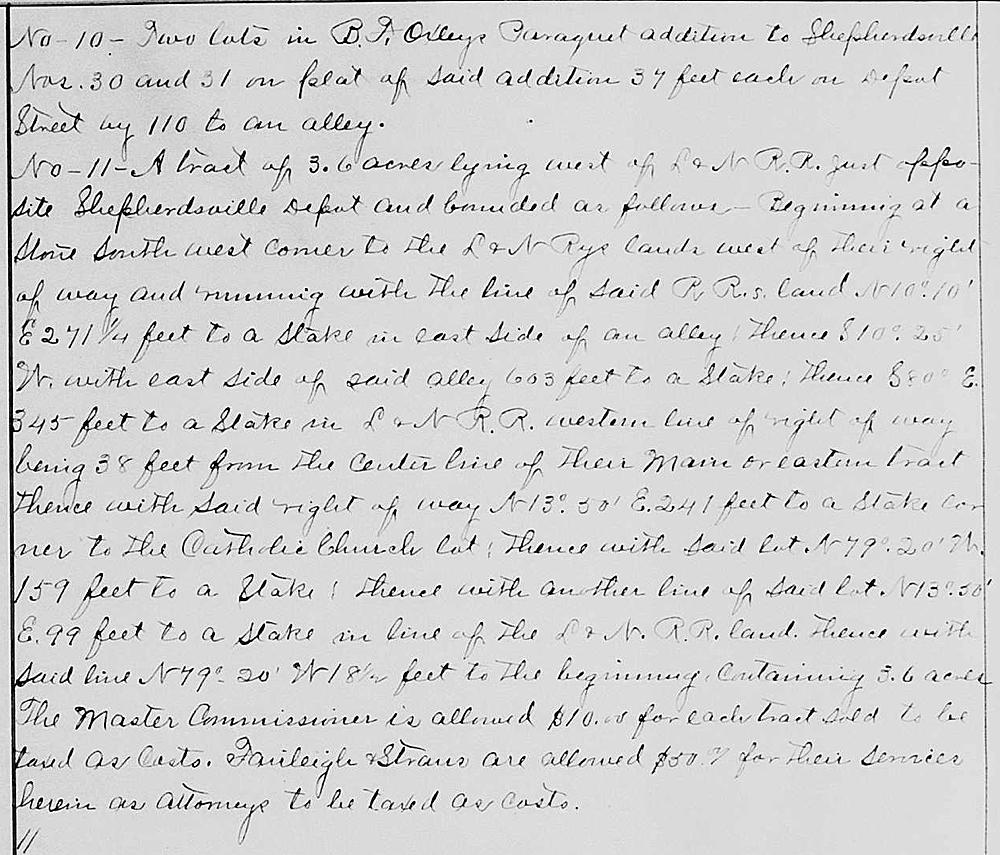 No-10- Two lots in B.F. Olleys Paraquet addition to Shepherdsville
Nos. 30 and 31 on plat of said addition 37 feet each on Depot
Street by 110 to an alley.
No-11-A tract of 3.6 acres lying west of L & N R.R. just oppo-
site Shepherdsville Depot and bounded as follows- Beginning at a
stone south west corner to the L & N Rys lands west of their right
of way and running with the line of said R R.s. land N10°.10'
E 271 1/4 feet to a stake in east side of an alley; thence S10°. 25'
W. with east side of said alley 603 feet to a stake; thence S80° E.
345 feet to a stake in L & N R.R. western line of right of way
being 38 feet from the center line of their Main or eastern tract
thence with said right of way N13°. 50' E. 241 feet to a stake cor
ner to the Catholic Church lot; thence with said lot N79°. 20' W.
159 feet to a stake; thence with another line of said lot N13°.50'
E. 99 feet to a stake in line of the L & N. R.R. land. thence with
said line N79°. 20' W 18 1/2 feet to the beginning. Containing 3.6 acres
The Master Commissioner is allowed $10.00 for each tract sold to be
taxed as Costs. Fairleigh & Straus are allowed $50. for their services
herein as attorneys to be taxed as costs.
11